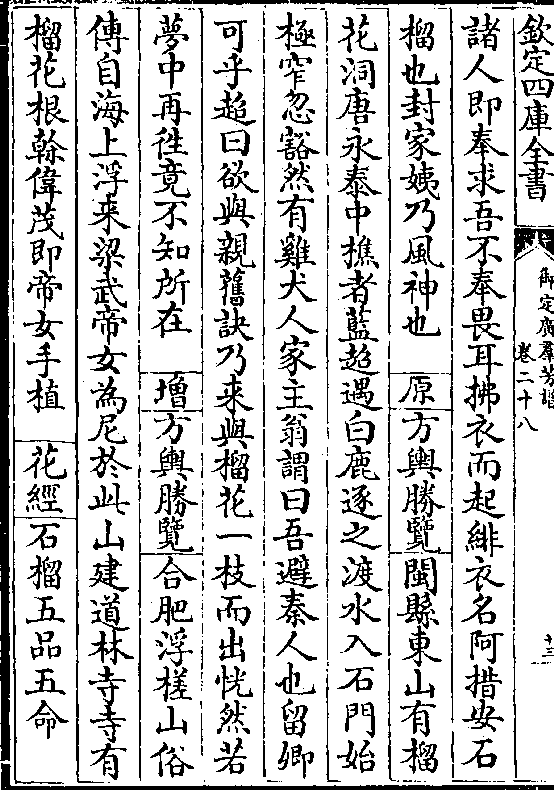 欽定四庫全書
御定廣羣芳譜
卷二十八
十三
諸人即奉求吾不奉畏耳拂衣而起緋衣名阿措安石
榴也封家姨乃風神也 原 方輿勝覽 閩縣東山有榴
花洞唐永泰中樵者藍超遇白鹿逐之渡水入石門始
極窄忽豁然有雞犬人家主翁謂曰吾避秦人也留卿
可乎超曰欲與親舊訣乃來與榴花一枝而出恍然若
夢中再徃竟不知所在 增 方輿勝覽 合肥浮槎山俗
傳自海上浮來梁武帝女為尼於此山建道林寺寺有
榴花根榦偉茂即帝女手植 花經 石榴五品五命